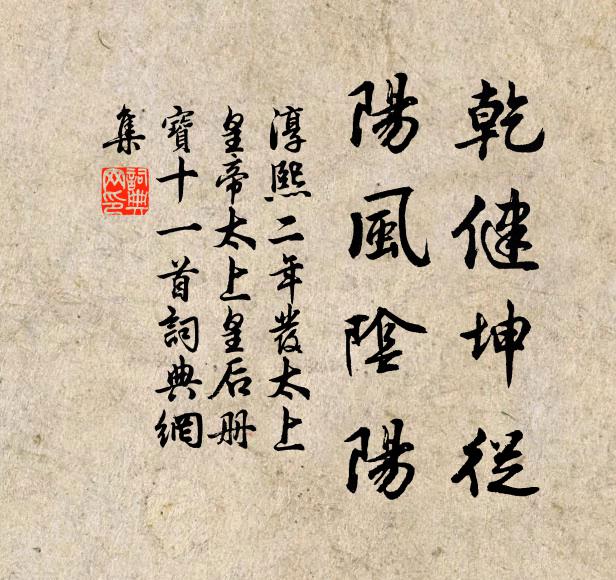 乾健坤從
陽風陰陽
淳熙二年發太上
皇帝太上皇后册
寶十一首詞典網
集
詞典
网印